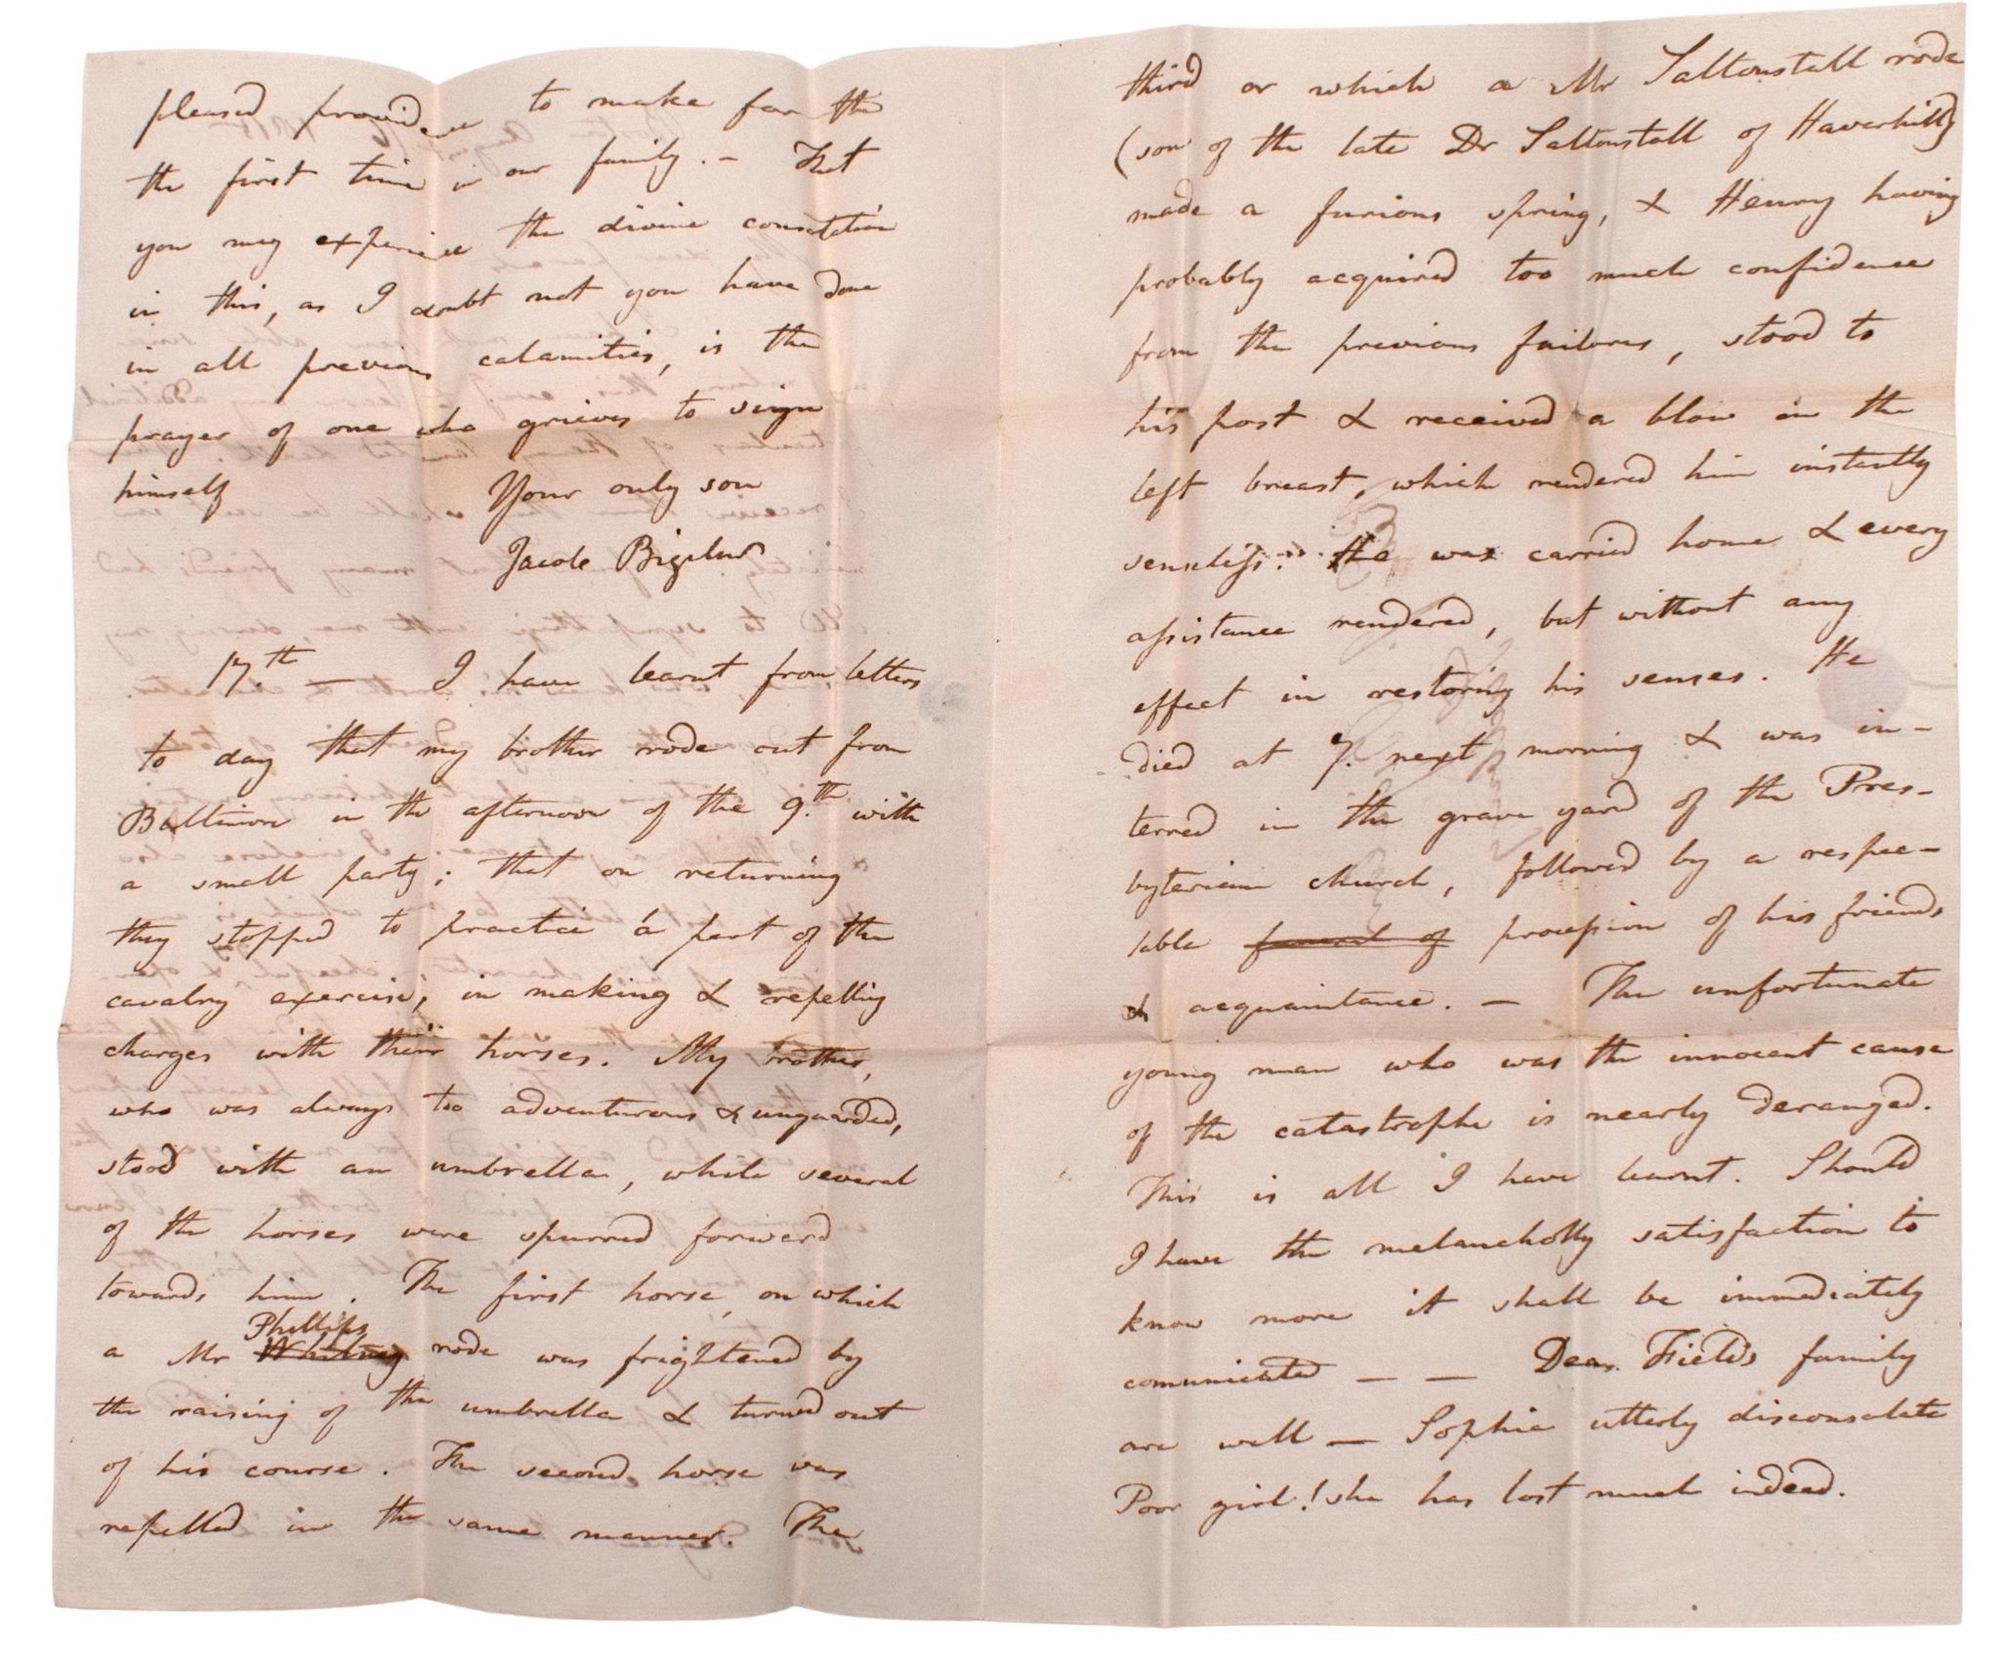 pleased providence to make for the
the first time in our family. — That
you may experience the divine consolation
in this, as I doubt not you have done
in all previous calamities, is the
prayer of one who grieves to sign
himself Your only son
Jacob Bigelow
17.th — I have learnt from letters
to day that my brother rode out from
Baltimore in the afternoon of the 9.th with
a small party; that on returning
they stopped to practice a part of the
cavalry exercise, in making & repelling
charges with their horses. My brother,
who was always too adventurous & unguarded,
stood with an umbrella, while several
of the horses were spurred forward
towards him. The first horse, on which
Phillips
a Mr Whitney rode was frightened by
the raising of the umbrella & turned out
of his course. The second horse was
repelled in the same manner. The
third or which a Mr Saltonstall rode
(son of the late Dr Saltonstall of Haverhill)
made a furious spring, & Henry having
probably acquired too much confidence
from the previous failures, stood to
his post & received a blow in the
left breast, which rendered him instantly
senseless. He was carried home & every
assistance rendered, but without any
effect in restoring his senses. He
died at 7. next morning & was in-
terred in the grave yard of the Pres-
byterian church, followed by a respec-
table funeral of procession of his friends
& acquaintance. — The unfortunate
young man who was the innocent cause
of the catastrophe is nearly deranged.
This is all I have learnt. Should
I have the melancholly satisfaction to
know more it shall be immediately
comunicated — — Dea. Field's family
are well — Sophia utterly disconsolate
Poor girl! she has lost much indeed.